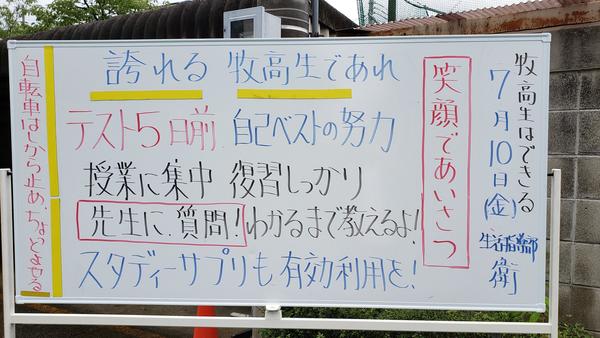 牧高生はできる
7月10日(金)
生活指導部
衛
笑顔であいさつ
誇れる 牧高生であれ
テスト5日前 自己ベストの努力
授業に集中 復習しっかり
先生に質問!わかるまで教えるよ!
スタディーサプリも有効利用を!
自転車はしから止め、ちょっとよせる